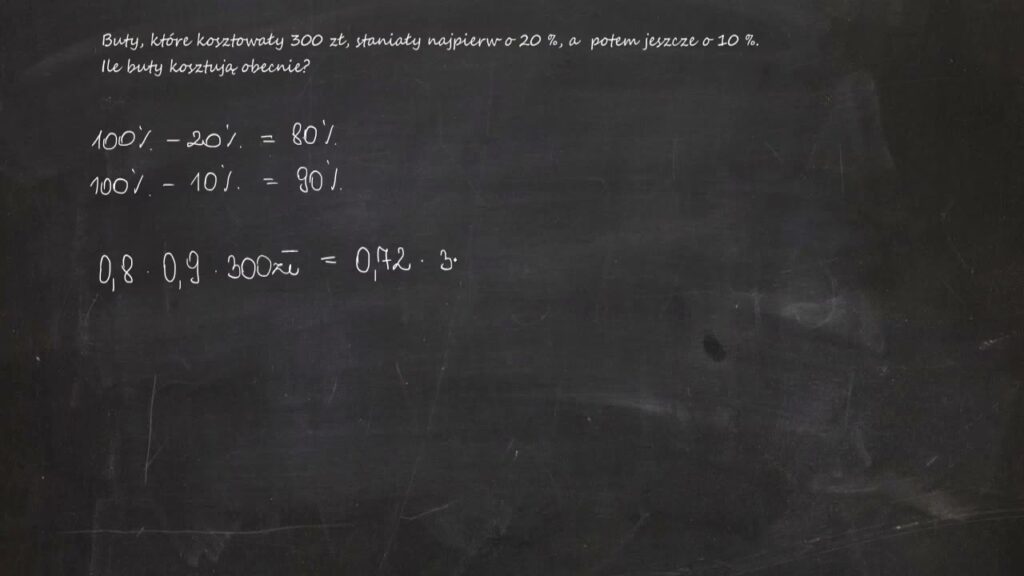 Buty, które kosztowały 300 zł, staniały najpierw o 20 %, a potem jeszcze o 10 %.
Ile buty kosztują obecnie?
100% - 20% = 80%
100% - 10% = 90%
0,8 · 0,9 · 300zł = 0,72 · 3